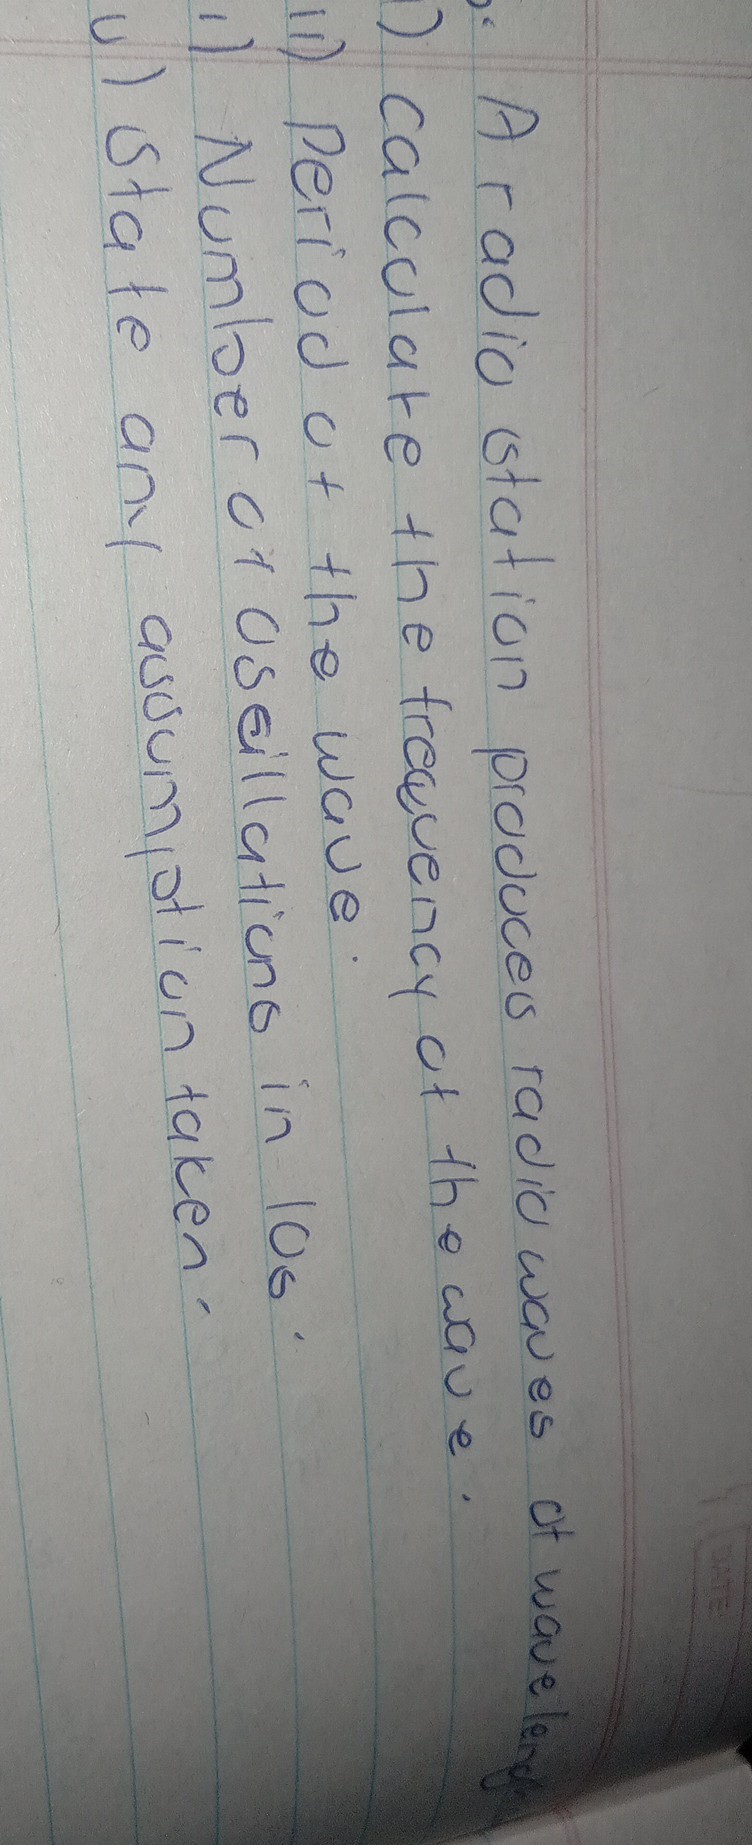 A radio station produces radio waves of waveleng
i) calculate the frequency of the wave.
ii) Period of the wave.
i) Number of oscillations in 10s.
v) State any assumption taken.
DATE